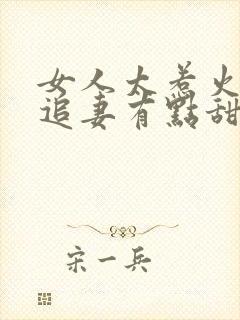 女人大惹火
追妻有點甜
宋一兵